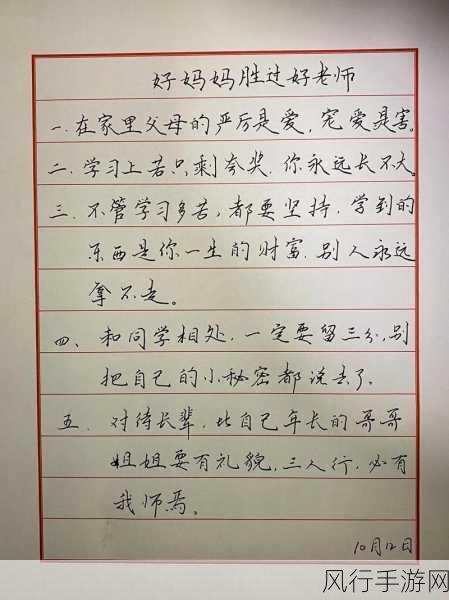 好妈妈胜过好老师
一.在家里父母的严厉是爱，宠爱是害。
二.学习上若只剩夸奖.你永远长不大。
三.不管学习多苦，都要坚持，学到的
东西是你一生的财富.别人永远
拿不走。
四、和同学相处，一定要留三分，别
把自己的小秘密都说去了。
五.对待长辈，比自己年长的哥哥
姐姐要有礼貌，三人行.必有
我师焉。
10月12日
风行手游网